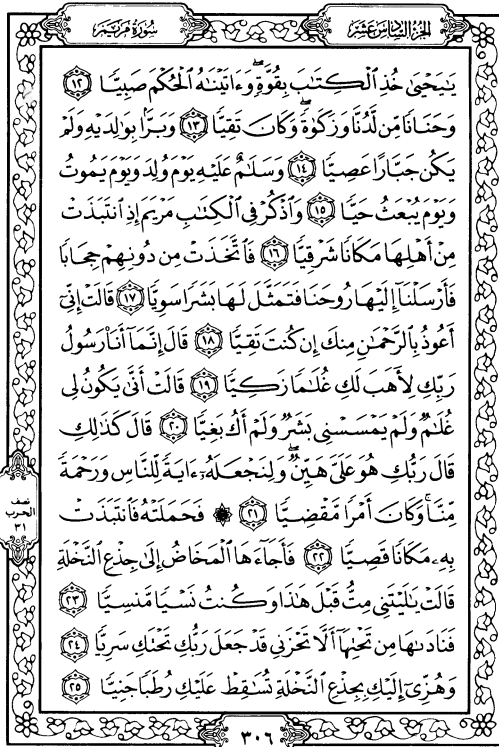 سُورَةُ مَرْيَمَ
الجُزءُ السَّادِسَ عَشَر
يَٰيَحْيَىٰ خُذِ ٱلْكِتَٰبَ بِقُوَّةٍۖ وَءَاتَيْنَٰهُ ٱلْحُكْمَ صَبِيًّا ۝١٢
وَحَنَانًا مِّن لَّدُنَّا وَزَكَوٰةًۖ وَكَانَ تَقِيًّا ۝١٣ وَبَرًّۢا بِوَٰلِدَيْهِ وَلَمْ
يَكُن جَبَّارًا عَصِيًّا ۝١٤ وَسَلَٰمٌ عَلَيْهِ يَوْمَ وُلِدَ وَيَوْمَ يَمُوتُ
وَيَوْمَ يُبْعَثُ حَيًّا ۝١٥ وَٱذْكُرْ فِى ٱلْكِتَٰبِ مَرْيَمَ إِذِ ٱنتَبَذَتْ
مِنْ أَهْلِهَا مَكَانًا شَرْقِيًّا ۝١٦ فَٱتَّخَذَتْ مِن دُونِهِمْ حِجَابًا
فَأَرْسَلْنَآ إِلَيْهَا رُوحَنَا فَتَمَثَّلَ لَهَا بَشَرًا سَوِيًّا ۝١٧ قَالَتْ إِنِّىٓ
أَعُوذُ بِٱلرَّحْمَٰنِ مِنكَ إِن كُنتَ تَقِيًّا ۝١٨ قَالَ إِنَّمَآ أَنَا۠ رَسُولُ
رَبِّكِ لِأَهَبَ لَكِ غُلَٰمًا زَكِيًّا ۝١٩ قَالَتْ أَنَّىٰ يَكُونُ لِى
غُلَٰمٌ وَلَمْ يَمْسَسْنِى بَشَرٌ وَلَمْ أَكُ بَغِيًّا ۝٢٠ قَالَ كَذَٰلِكِ
قَالَ رَبُّكِ هُوَ عَلَىَّ هَيِّنٌۖ وَلِنَجْعَلَهُۥٓ ءَايَةً لِّلنَّاسِ وَرَحْمَةً
مِّنَّاۚ وَكَانَ أَمْرًا مَّقْضِيًّا ۝٢١ ۞ فَحَمَلَتْهُ فَٱنتَبَذَتْ
بِهِۦ مَكَانًا قَصِيًّا ۝٢٢ فَأَجَآءَهَا ٱلْمَخَاضُ إِلَىٰ جِذْعِ ٱلنَّخْلَةِ
قَالَتْ يَٰلَيْتَنِى مِتُّ قَبْلَ هَٰذَا وَكُنتُ نَسْيًا مَّنسِيًّا ۝٢٣
فَنَادَىٰهَا مِن تَحْتِهَآ أَلَّا تَحْزَنِى قَدْ جَعَلَ رَبُّكِ تَحْتَكِ سَرِيًّا ۝٢٤
وَهُزِّىٓ إِلَيْكِ بِجِذْعِ ٱلنَّخْلَةِ تُسَٰقِطْ عَلَيْكِ رُطَبًا جَنِيًّا ۝٢٥
نصف
الحزب
٣١
٣٠٦